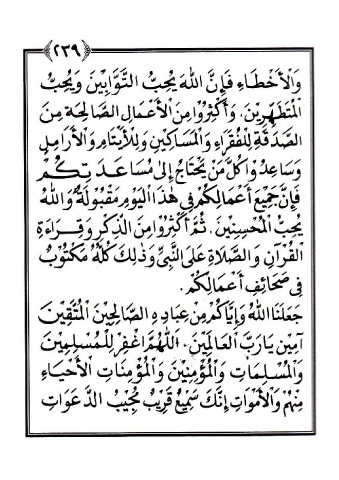 ﴿٢٣٩﴾
وَالْأَخْطَاءِ فَإِنَّ اللهَ يُحِبُّ التَّوَّابِينَ وَيُحِبُّ
الْمُتَطَهِّرِينَ. وَأَكْثِرُوا مِنَ الْأَعْمَالِ الصَّالِحَةِ مِنَ
الصَّدَقَةِ لِلْفُقَرَاءِ وَالْمَسَاكِينِ وَلِلْأَيْتَامِ وَالْأَرَامِلِ
وَسَاعِدُوا كُلَّ مَنْ يَحْتَاجُ إِلَى مُسَاعَدَتِكُمْ
فَإِنَّ جَمِيعَ أَعْمَالِكُمْ فِي هٰذَا الْيَوْمِ مَقْبُولَةٌ وَاللهُ
يُحِبُّ الْمُحْسِنِينَ. ثُمَّ أَكْثِرُوا مِنَ الذِّكْرِ وَقِرَاءَةِ
الْقُرْآنِ وَالصَّلَاةِ عَلَى النَّبِيِّ وَذٰلِكَ كُلُّهُ مَكْتُوبٌ
فِي صَحَائِفِ أَعْمَالِكُمْ.
جَعَلَنَا اللهُ وَإِيَّاكُمْ مِنْ عِبَادِهِ الصَّالِحِينَ الْمُتَّقِينَ
آمِينَ يَا رَبَّ الْعَالَمِينَ. اَللّٰهُمَّ اغْفِرْ لِلْمُسْلِمِينَ
وَالْمُسْلِمَاتِ وَالْمُؤْمِنِينَ وَالْمُؤْمِنَاتِ الْأَحْيَاءِ
مِنْهُمْ وَالْأَمْوَاتِ إِنَّكَ سَمِيعٌ قَرِيبٌ مُجِيبُ الدَّعَوَاتِ